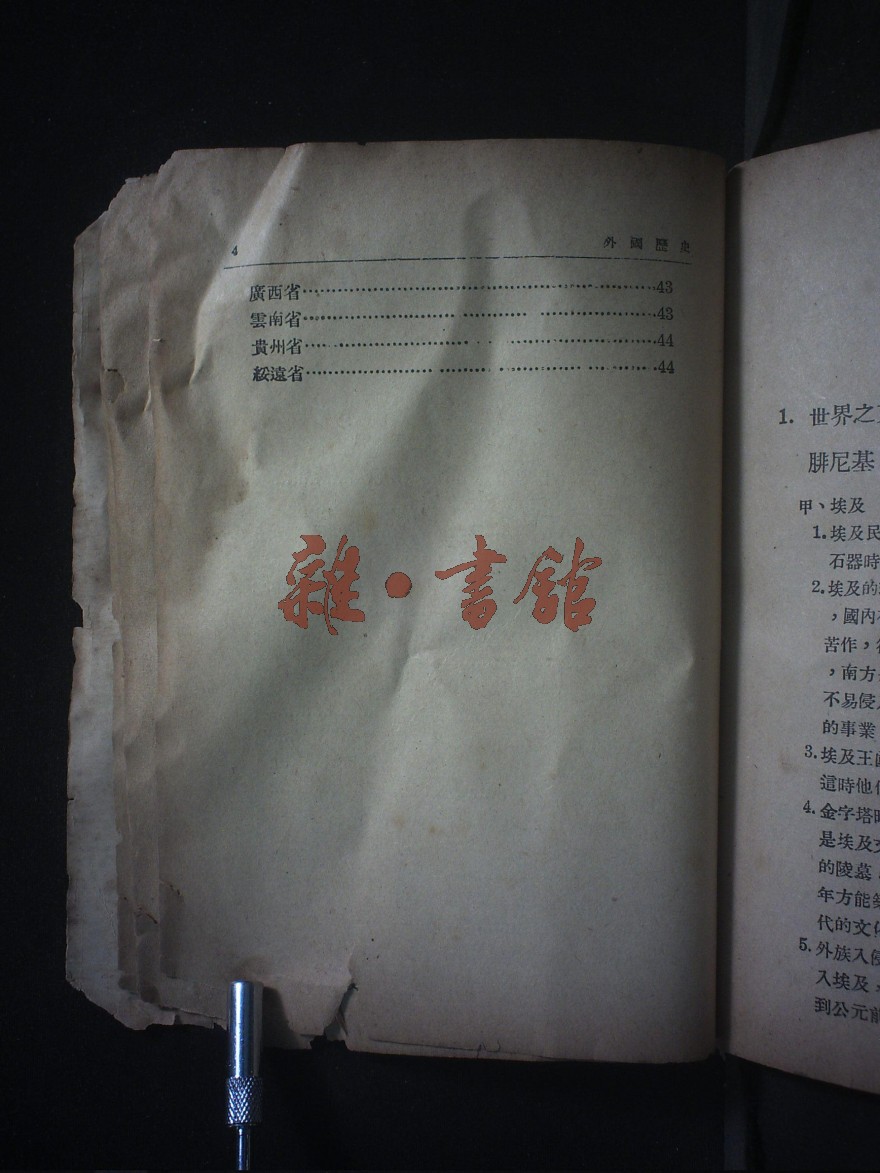 4 外國歷史
廣西省43
雲南省43
貴州省44
綏遠省44
雜·書館
1. 世界之
腓尼基
甲、埃及
1.埃及民
石器時
2.埃及的
，國內
苦作，
，南方
不易侵
的事業
3.埃及王
這時他
4.金字塔
是埃及
的陵墓
年方能
代的文
5.外族入侵
入埃及，
到公元前